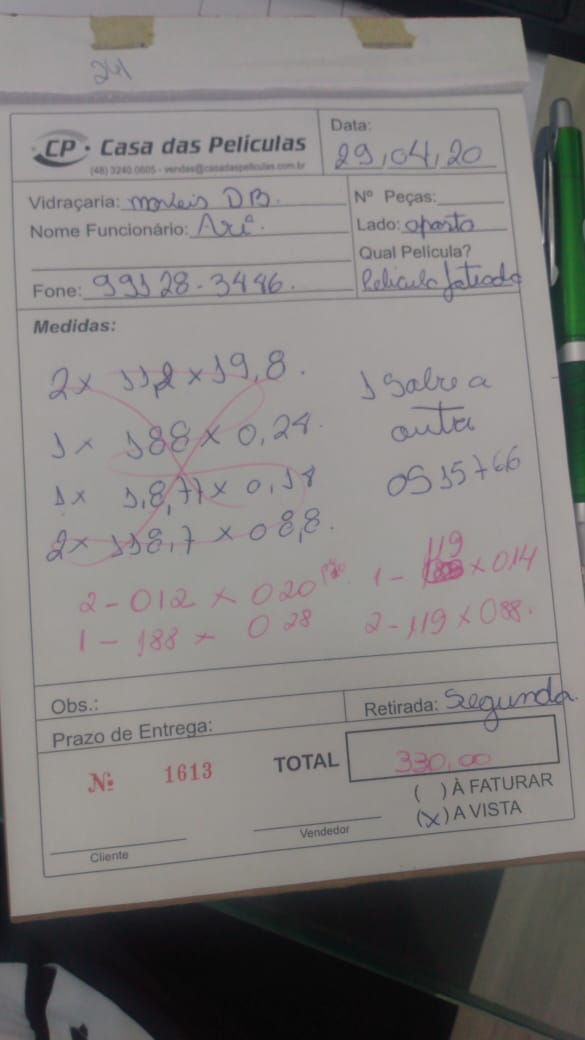 241
CP · Casa das Películas
(48) 3240.0605 - vendas@casadaspeliculas.com.br
Data:
29,04,20
Vidraçaria: DB.
Nome Funcionário: Ari
Fone: 99128-3446.
Nº Peças:
Lado: oposto
Qual Película?
Pelicula Jateado
Medidas:
2x 11,2 x 19,8.
1x 188 x 0,24.
1x 1,8,77 x 0,14
2x 118,7 x 08,8.
1 Sobre a
outra
0515766
2 - 012 x 020
1 - 188 x 028
1 - 119 x 014
2 - 119 x 088.
Obs.:
Prazo de Entrega:
Retirada: Segunda
Nº 1613
TOTAL 330,00
( ) À FATURAR
(x) A VISTA
Cliente
Vendedor